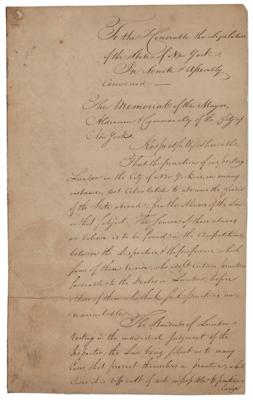 To the Honorable the Legislature
of the State of New York
In Senate & Assembly
Convened —
The Memorial of the Mayor,
Aldermen & Commonalty of the City of
New York
Respectfully Sheweth
That the practice of inspecting
Lumber in the City of New York is, in many
instances, not Calculated to advance the
of the State abroad, for the Abuses of the Law
on that subject. The source of these abuses
is to be found, in the Competition
between the Inspectors & the preference which
some of them receive, who adopt certain practices
favorable to the Dealers in Lumber, before
others of them who think such practices are
unwarrantable.
The Standard of Lumber
resting in the individual Judgment of the
Inspector, the Law being silent as to many
Cases that present themselves in practice,